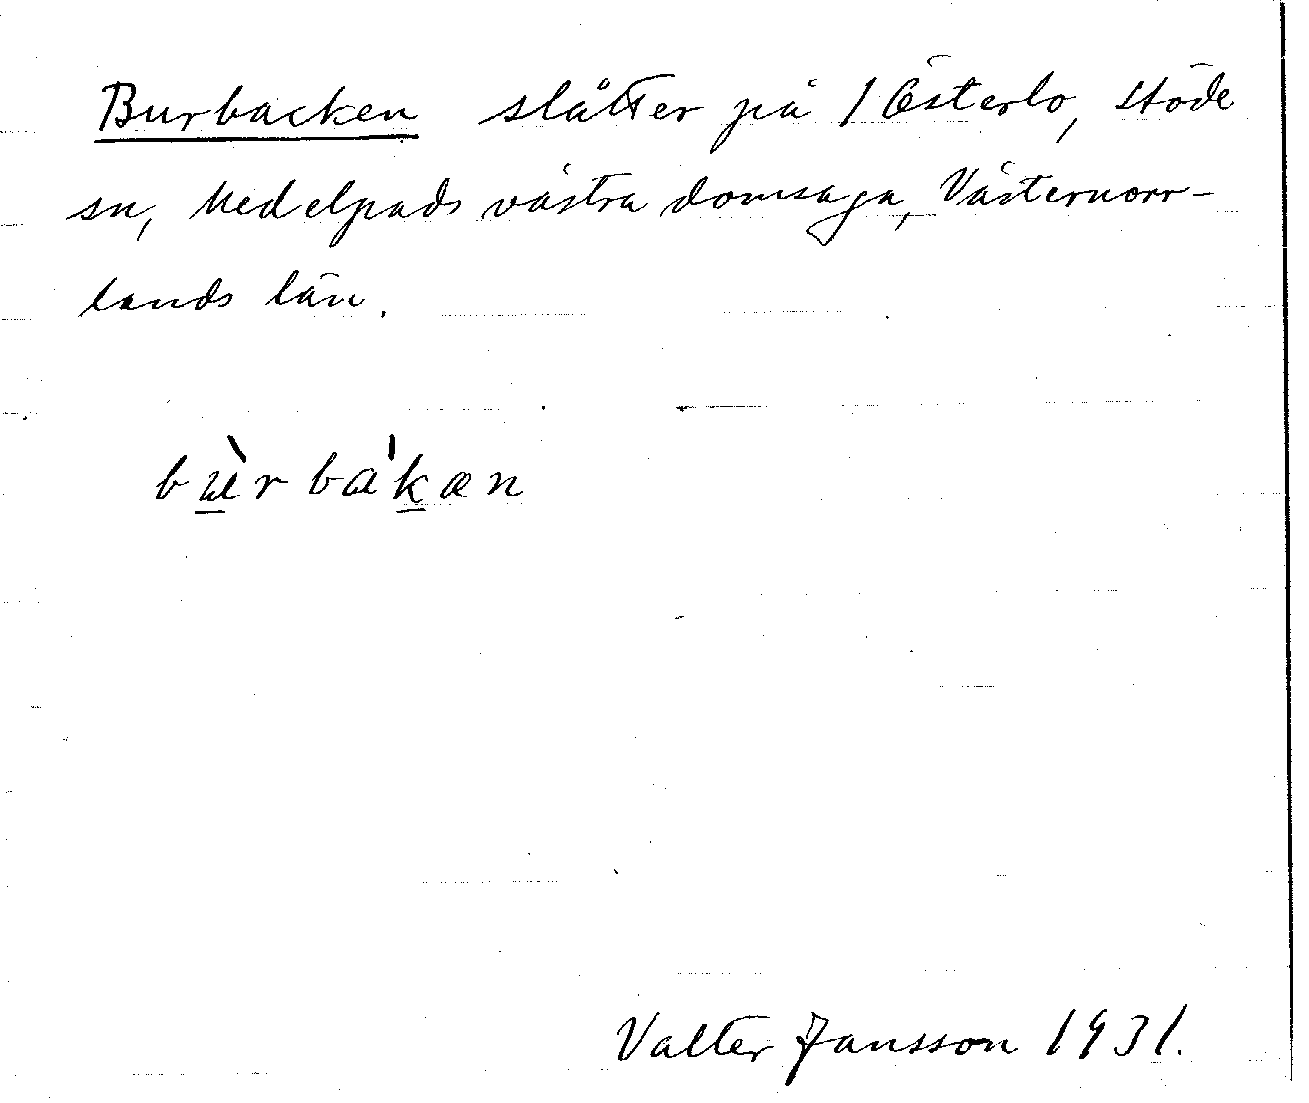 Burbacken slåtter på 1 Österlo, Stöde
sn, Medelpads västra domsaga, Västernorr-
lands län.
bù̲rba'k̲æn
Valter Jansson 1931.